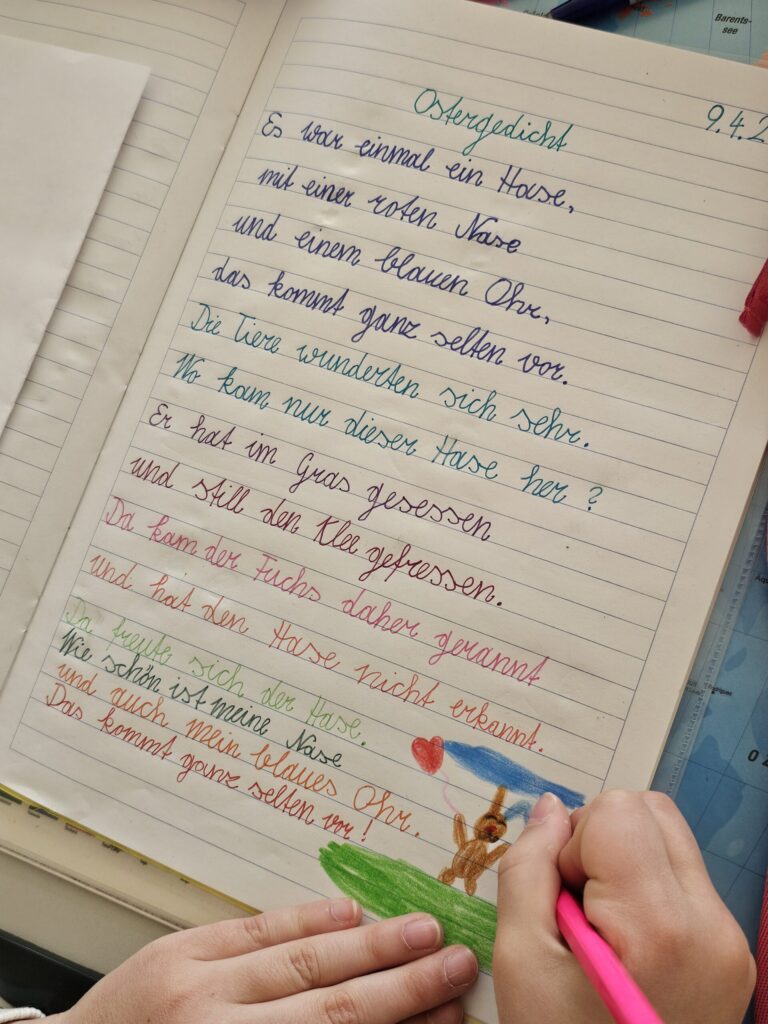 Barents-
see
Ostergedicht
9.4.2
Es war einmal ein Hase,
mit einer roten Nase
und einem blauen Ohr,
das kommt ganz selten vor.
Die Tiere wunderten sich sehr.
Wo kam nur dieser Hase her ?
Er hat im Gras gesessen
und still den Klee gefressen.
Da kam der Fuchs daher gerannt
und hat den Hase nicht erkannt.
Da freute sich der Hase.
Wie schön ist meine Nase
und auch mein blaues Ohr.
Das kommt ganz selten vor!